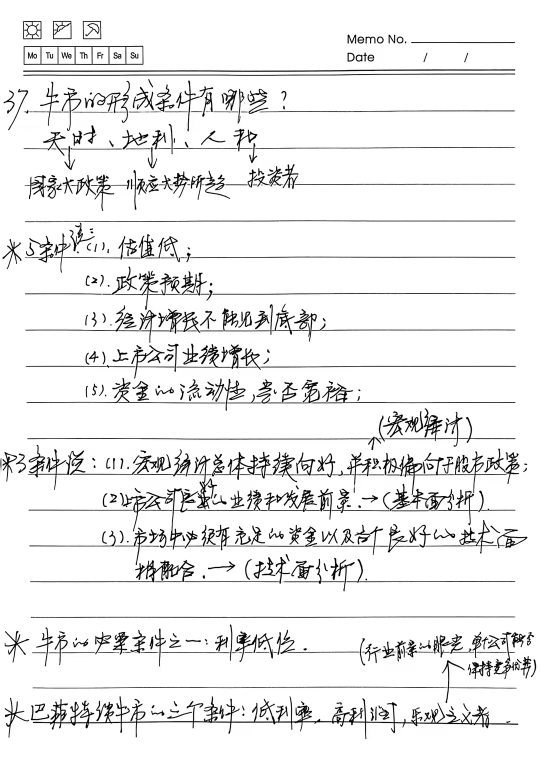 Memo No.
Mo Tu We Th Fr Sa Su
Date / /
37. 牛市的形成条件有哪些？
天时、地利、人和
国家大政策 顺应大势所趋 投资者
*5条件 (1). 估值低；
(2). 政策预期；
(3). 经济增长不能见到底部；
(4). 上市公司业绩增长；
(5). 资金的流动性，是否宽裕；
(宏观经济)
*3条件说：(1). 宏观经济总体持续向好，并积极偏向于股市政策；
(2) 上市公司的业绩和发展前景. → (基本面分析).
(3). 市场中必须有充足的资金以及各个良好的技术面
相配合. → (技术面分析).
* 牛市的必要条件之一：利率低位.
(行业前景的眼光，公司能否
保持竞争优势)
* 巴菲特续牛市的三个条件：低利率，高利润，乐观主义者.